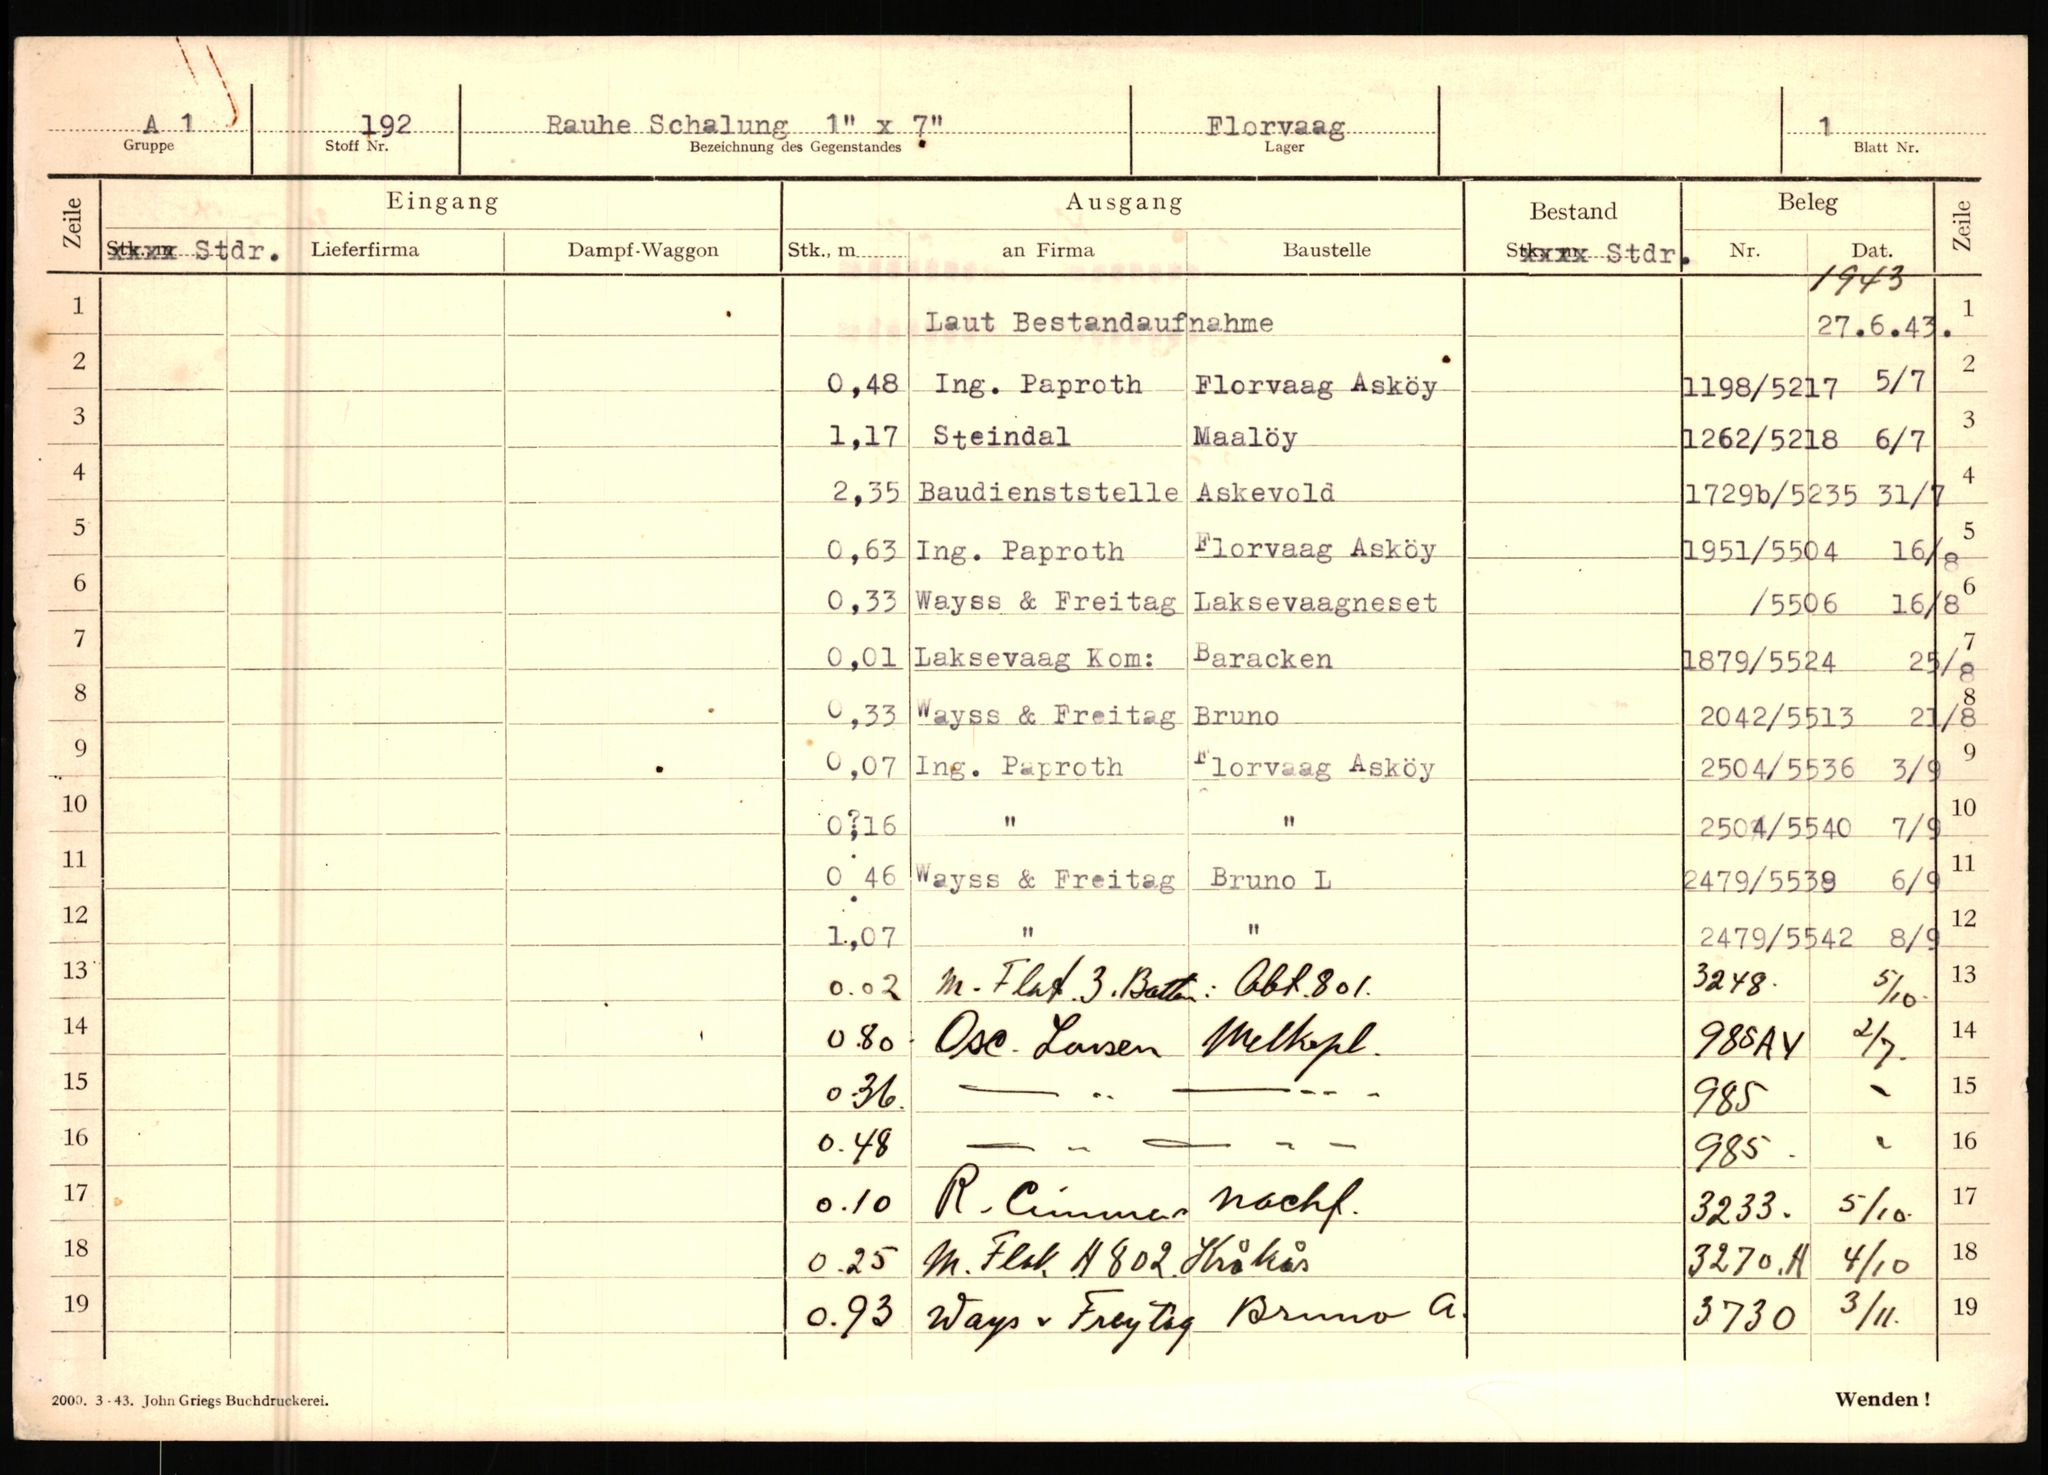 A 1 192 Rauhe Schalung 1" x 7" Florvaag 1
Gruppe Stoff Nr. Bezeichnung des Gegenstandes Lager Blatt Nr.
Zeile Eingang Ausgang Bestand Beleg Zeile
Stk., m Stdr. Lieferfirma Dampf-Waggon Stk., m an Firma Baustelle Stk., m Stdr. Nr. Dat.
1943
1 Laut Bestandaufnahme 27.6.43. 1
2 0,48 Ing. Paproth Florvaag Asköy 1198/5217 5/7 2
3 1,17 Steindal Maalöy 1262/5218 6/7 3
4 2,35 Baudienststelle Askevold 1729b/5235 31/7 4
5 0,63 Ing. Paproth Florvaag Asköy 1951/5504 16/8 5
6 0,33 Wayss & Freitag Laksevaagneset /5506 16/8 6
7 0,01 Laksevaag Kom: Baracken 1879/5524 25/8 7
8 0,33 Wayss & Freitag Bruno 2042/5513 21/8 8
9 0,07 Ing. Paproth Florvaag Asköy 2504/5536 3/9 9
10 0,16 " " 2504/5540 7/9 10
11 0 46 Wayss & Freitag Bruno L 2479/5539 6/9 11
12 1,07 " " 2479/5542 8/9 12
13 0.02 M. Flak 3. Battr: Abt. 801. 3248. 5/10. 13
14 0.80 Osc. Larsen 985 2/7. 14
15 0.36. — " — " — 985 " 15
16 0.48 — " — " — 985. " 16
17 0.10 R. Cimmer nachf. 3233. 5/10. 17
18 0.25 M. Flak A 802. Kråkås 3270.A 4/10 18
19 0.93 Ways & Freytag Bruno A. 3730 3/11. 19
2000. 3-43. John Griegs Buchdruckerei. Wenden!